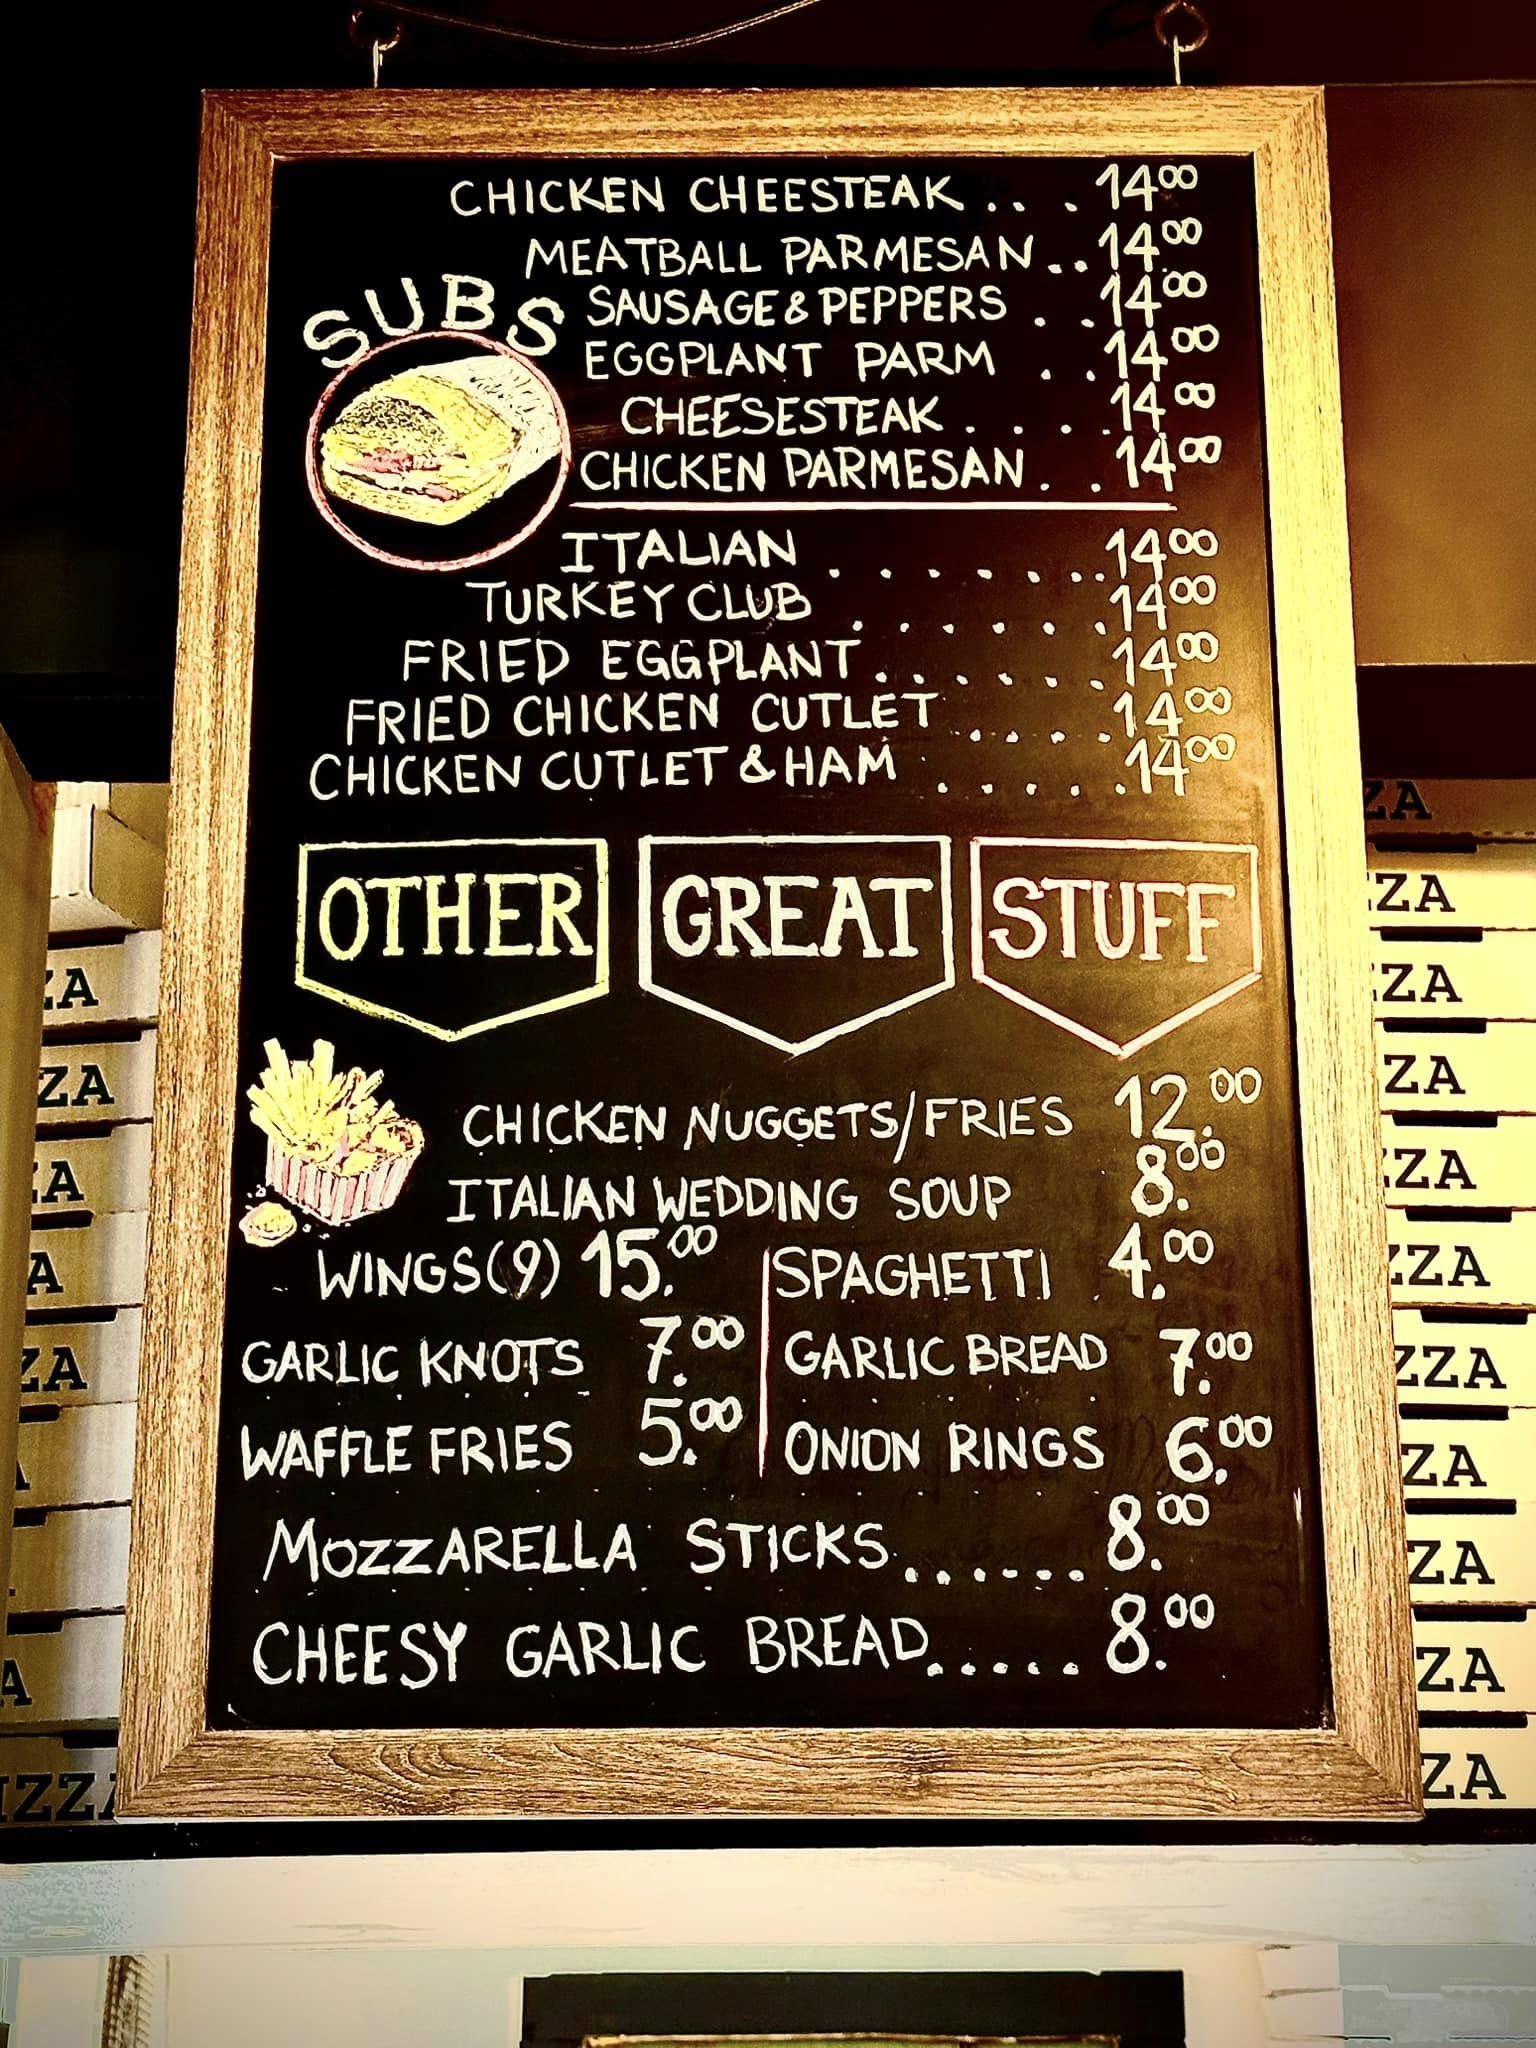 CHICKEN CHEESTEAK . . . 14.00
MEATBALL PARMESAN . . 14.00
SUBS
SAUSAGE & PEPPERS . . 14.00
EGGPLANT PARM . . 14.00
CHEESESTEAK . . . . 14.00
CHICKEN PARMESAN . . 14.00
ITALIAN . . . . . . . 14.00
TURKEY CLUB . . . . . . 14.00
FRIED EGGPLANT . . . . . . 14.00
FRIED CHICKEN CUTLET . . . . 14.00
CHICKEN CUTLET & HAM . . . . . 14.00
OTHER GREAT STUFF
CHICKEN NUGGETS/FRIES 12.00
ITALIAN WEDDING SOUP 8.00
WINGS (9) 15.00
SPAGHETTI 4.00
GARLIC KNOTS 7.00
GARLIC BREAD 7.00
WAFFLE FRIES 5.00
ONION RINGS 6.00
MOZZARELLA STICKS . . . . . . 8.00
CHEESY GARLIC BREAD . . . . . 8.00
ZA
ZZA
ZZA
ZZA
ZZA
ZZA
ZZA
ZZA
ZZA
ZZA
ZZA
ZA
ZZA
ZA
A
ZA
A
A
IZZA